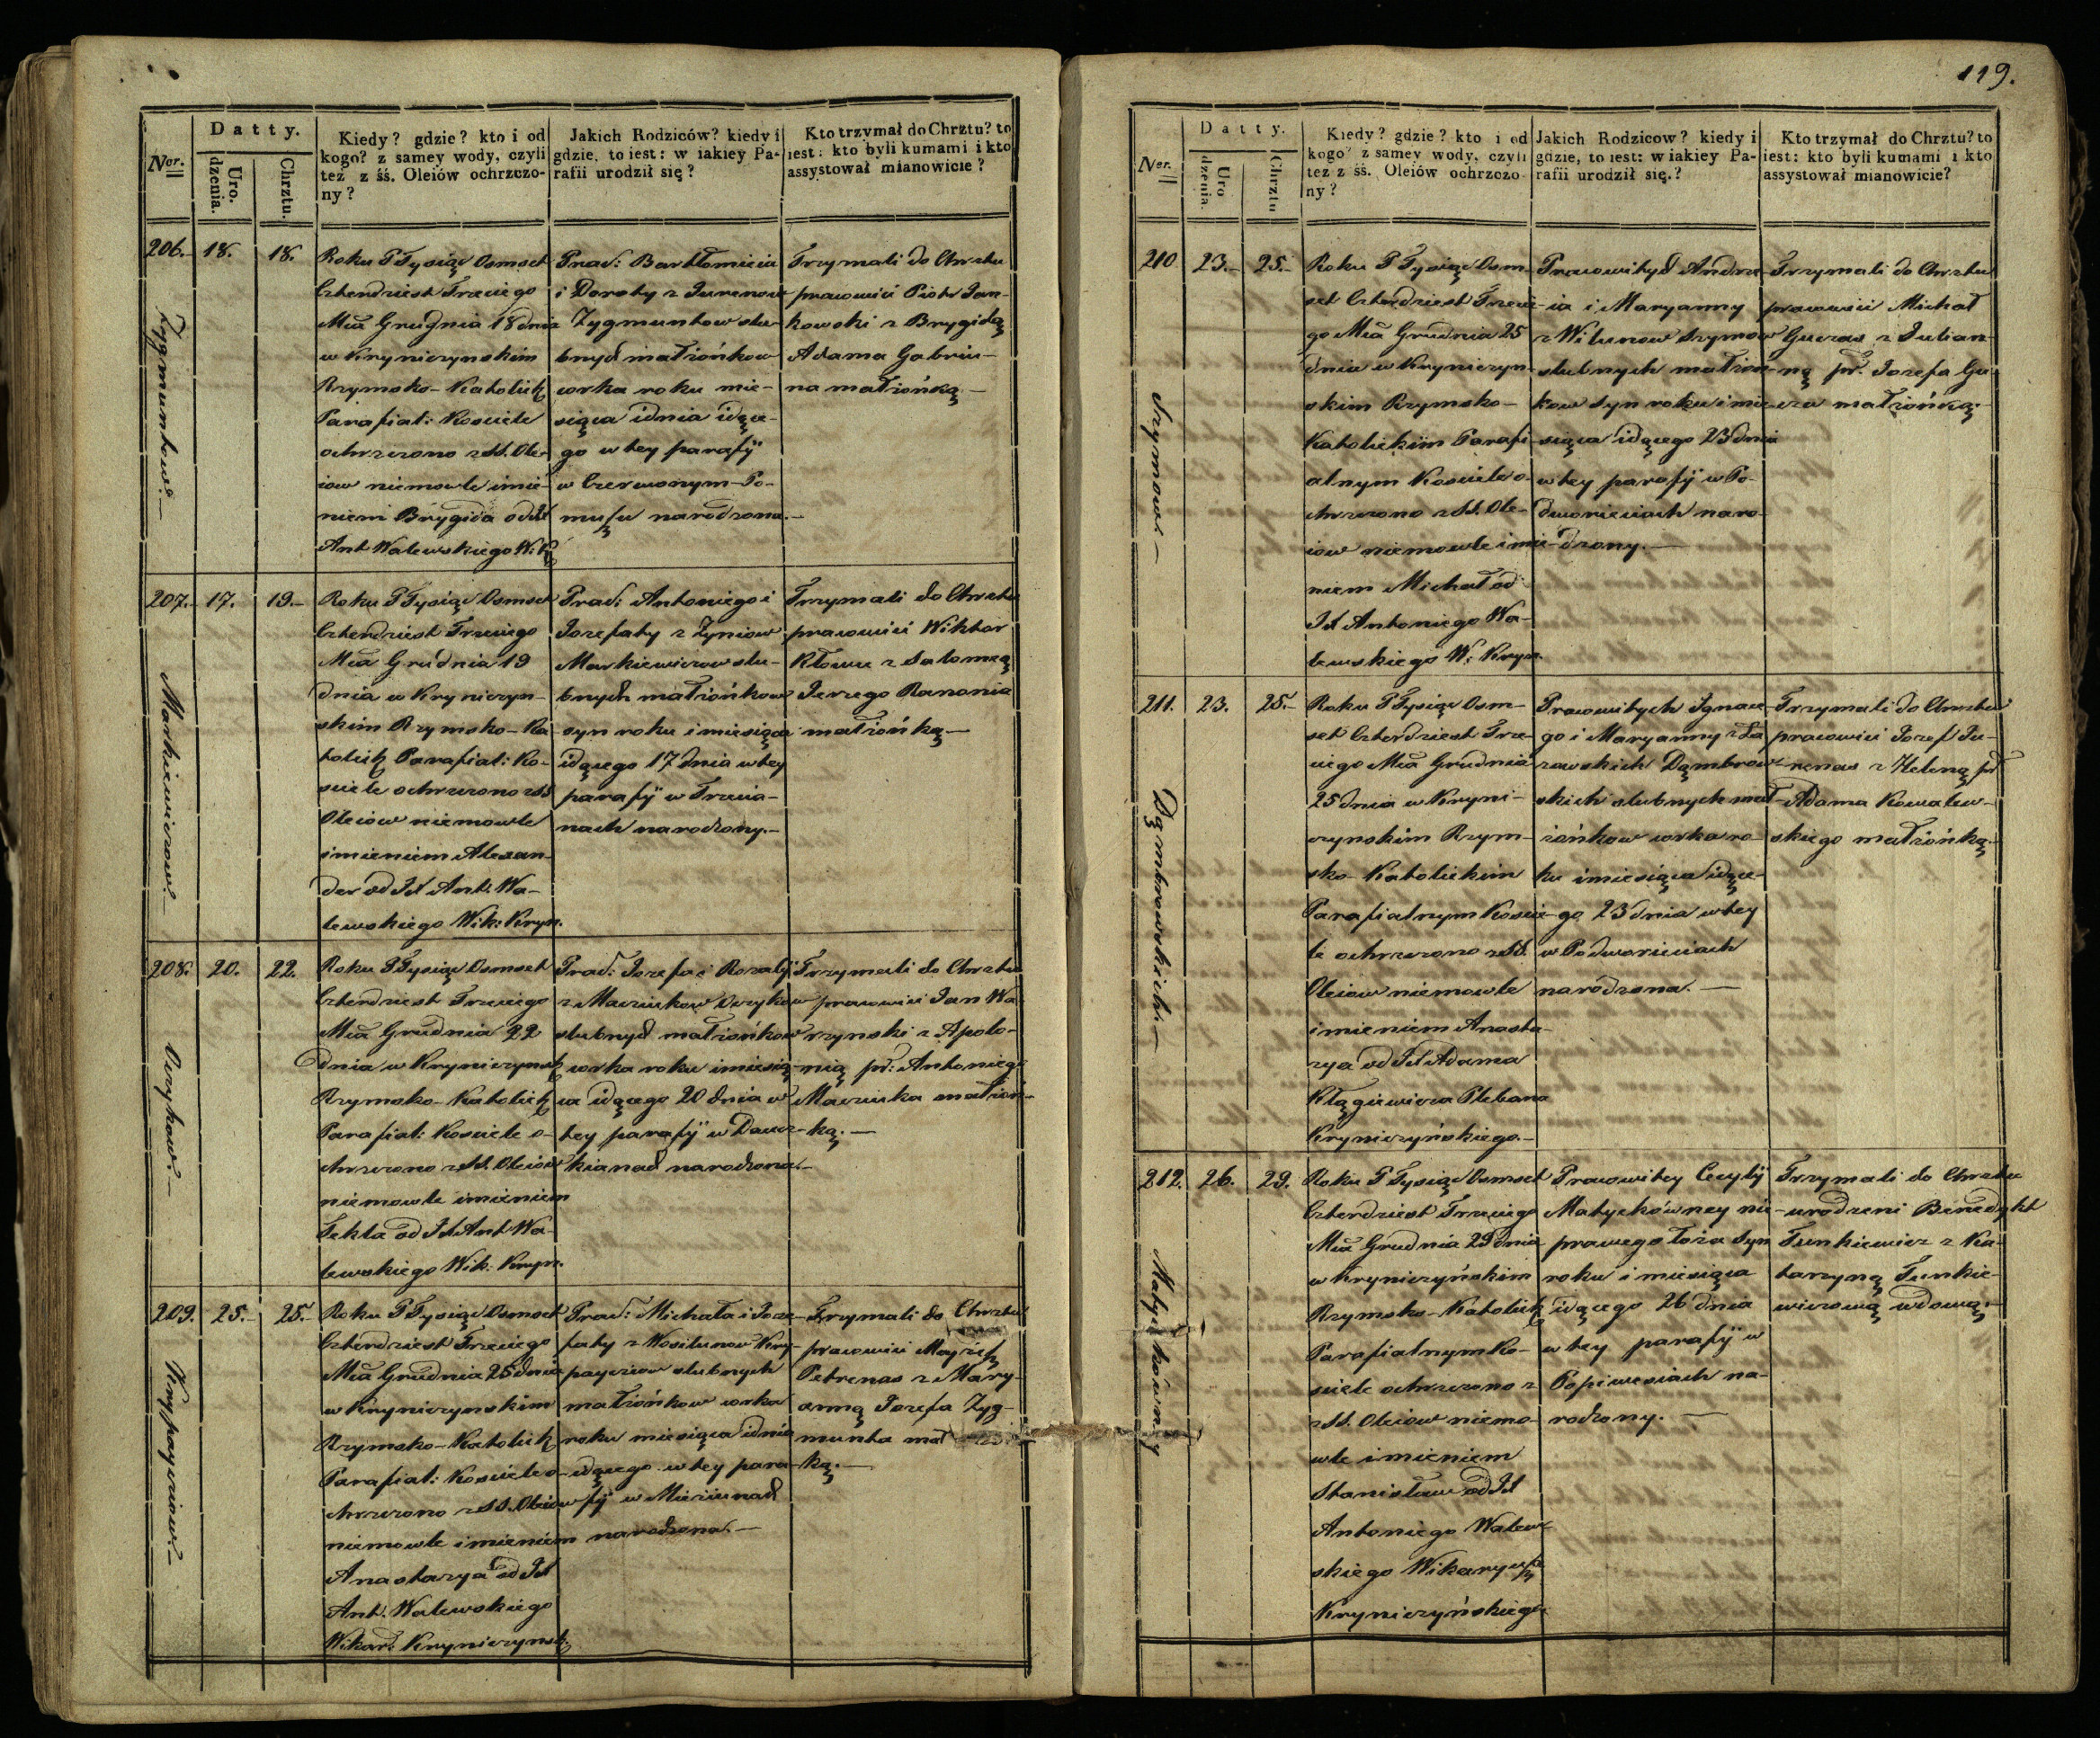 Nor.
Datty.
Uro-
dzenia.
Chrztu.
Kiedy? gdzie? kto i od
kogo? z samey wody, czyli
też z śś. Oleiów ochrzczo-
ny?
Jakich Rodziców? kiedy i
gdzie, to iest: w iakiey Pa-
rafii urodził się?
Kto trzymał do Chrztu? to
iest: kto byli kumami i kto
assystował mianowicie?
206.
Zygmuntow:
18.
18.
Roku P Tysiąc Osmset
Czterdziest Trzeciego
Mca Grudnia 18 dnia
w Kryniczynskim
Rzymsko-Katolick
Parafial: Kosciele
ochrzczono z SS. Ole-
iow niemowle imie-
niem Brygida od Jx
Ant Walewskiego W: K
Praw: Bartłomieia
i Doroty z Jurenow
Zygmuntow slu-
bnych małżońkow
corka roku mie-
siąca i dnia idące-
go w tey parafij
w Czerwonym-Po-
musu narodzona.
Trzymali do Chrztu
prawowici Piotr Jan-
kowski z Brygidą
Adama Gabriu-
na małżońką
207.
Markiewiczow.
17.
19.
Roku P Tysiąc Osmset
Czterdziest Trzeciego
Mca Grudnia 19
dnia w Krynicyzn-
skim Rzymsko-Ka-
tolick Parafial: Ko-
sciele ochrzczono z SS
Oleiow niemowle
imieniem Alexan-
der od Jx Ant: Wa-
lewskiego Wik: Kryn.
Praw: Antoniego i
Jozefaty z Zyniow
Markiewiczow slu-
bnych małżońkow
syn roku i miesiąca
idącego 17 dnia w tey
parafij w Trzcia-
nach narodzony.
Trzymali do Chrztu
prawowici Wiktor
z Salomeą
Jerzego
małżońką
208.
20.
22.
Roku P Tysiąc Osmset
Czterdziest Trzeciego
Mca Grudnia 22
dnia w Krynicyznsk
Rzymsko-Katolick
Parafial: Kosciele o-
chrzczono z SS. Oleiow
niemowle imieniem
Tekla od Jx Ant Wa-
lewskiego Wik: Kryn.
Praw: Jozefa i Rozalij
z Maciukow
slubnych małżońkow
corka roku i miesią-
ca idącego 20 dnia w
tey parafij w
narodzona.
Trzymali do Chrztu
prawowici Jan Wa-
rzynski z Apolo-
nią pr: Antoniego
Maciuka małżoń-
ką.
209.
25.
25.
Roku P Tysiąc Osmset
Czterdziest Trzeciego
Mca Grudnia 25 dnia
w Krynicyznskim
Rzymsko-Katolick
Parafial: Kosciele o-
chrzczono z SS. Oleiow
niemowle imieniem
Anastazya od Jx
Ant. Walewskiego
Wikar: Krynicyznsk.
Praw: Michała i Joze-
faty z Wosilunow Kry-
payciow slubnych
małżońkow corka
roku miesiąca i dnia
idącego w tey para-
fij w
narodzona.
Trzymali do Chrztu
prawowici
Petrenas z Mary-
anną Jozefa Zyg-
munta mał
ką.
119.
Nor.
Datty.
Uro
dzenia.
Chrztu
Kiedy? gdzie? kto i od
kogo? z samey wody, czyli
też z śś. Oleiów ochrzczo-
ny?
Jakich Rodzicow? kiedy i
gdzie, to iest: w iakiey Pa-
rafii urodził się.?
Kto trzymał do Chrztu? to
iest: kto byli kumami i kto
assystował mianowicie?
210
Szymow
23.
25.
Roku P Tysiąc Osm-
set Czterdziest Trzecie-
go Mca Grudnia 25
dnia w Krynicyzn-
skim Rzymsko-
Katolickim Parafi-
alnym Kosciele o-
chrzczono z SS. Ole-
iow niemowle imie-
niem Michał od
Jx Antoniego Wa-
lewskiego W: Kryn.
Prawowitych Andrze-
ia i Maryanny
z Wilunow Szymow
slubnych małżoń-
kow syn roku i mie-
siąca idącego 23 dnia
w tey parafij w Po-
dworzeciach naro-
dzony.
Trzymali do Chrztu
prawowici Michał
z Julian-
ną pr. Jozefa
małżońką.
211.
Dąmbrowskich.
23.
25.
Roku P Tysiąc Osm-
set Czterdziest Trze-
ciego Mca Grudnia
25 dnia w Kryni-
czynskim Rzym-
sko-Katolickim
Parafialnym Koscie-
le ochrzczono z SS.
Oleiow niemowle
imieniem Anasta-
zya od Jx Adama
Kłągiewicza Plebana
Krynicyzńskiego.
Prawowitych Ignace-
go i Maryanny z Ła-
zowskich Dąmbrow-
skich slubnych mał-
żońkow corka ro-
ku i miesiąca idące-
go 23 dnia w tey
w Podworzeciach
narodzona.
Trzymali do Chrztu
prawowici Jozef Ju-
renas z Heleną pr
Adama Kowalew-
skiego małżońką.
212.
Matyckówney
26.
29.
Roku P Tysiąc Osmset
Czterdziest Trzeciego
Mca Grudnia 29 dnia
w Krynicyzńskim
Rzymsko-Katolick
Parafialnym Ko-
sciele ochrzczono z
z SS. Oleiow niemo-
wle imieniem
Stanisław od Jx
Antoniego Walew-
skiego Wikaryusza
Krynicyzńskiego.
Prawowitey Cecylij
Matyckówney nie-
prawego łoża Syn
roku i miesiąca
idącego 26 dnia
w tey parafij w
Popiwesiach na-
rodzony.
Trzymali do Chrztu
urodzeni Benedykt
Tunkiewicz z Ka-
tarzyną Tunkie-
wiczową wdową.